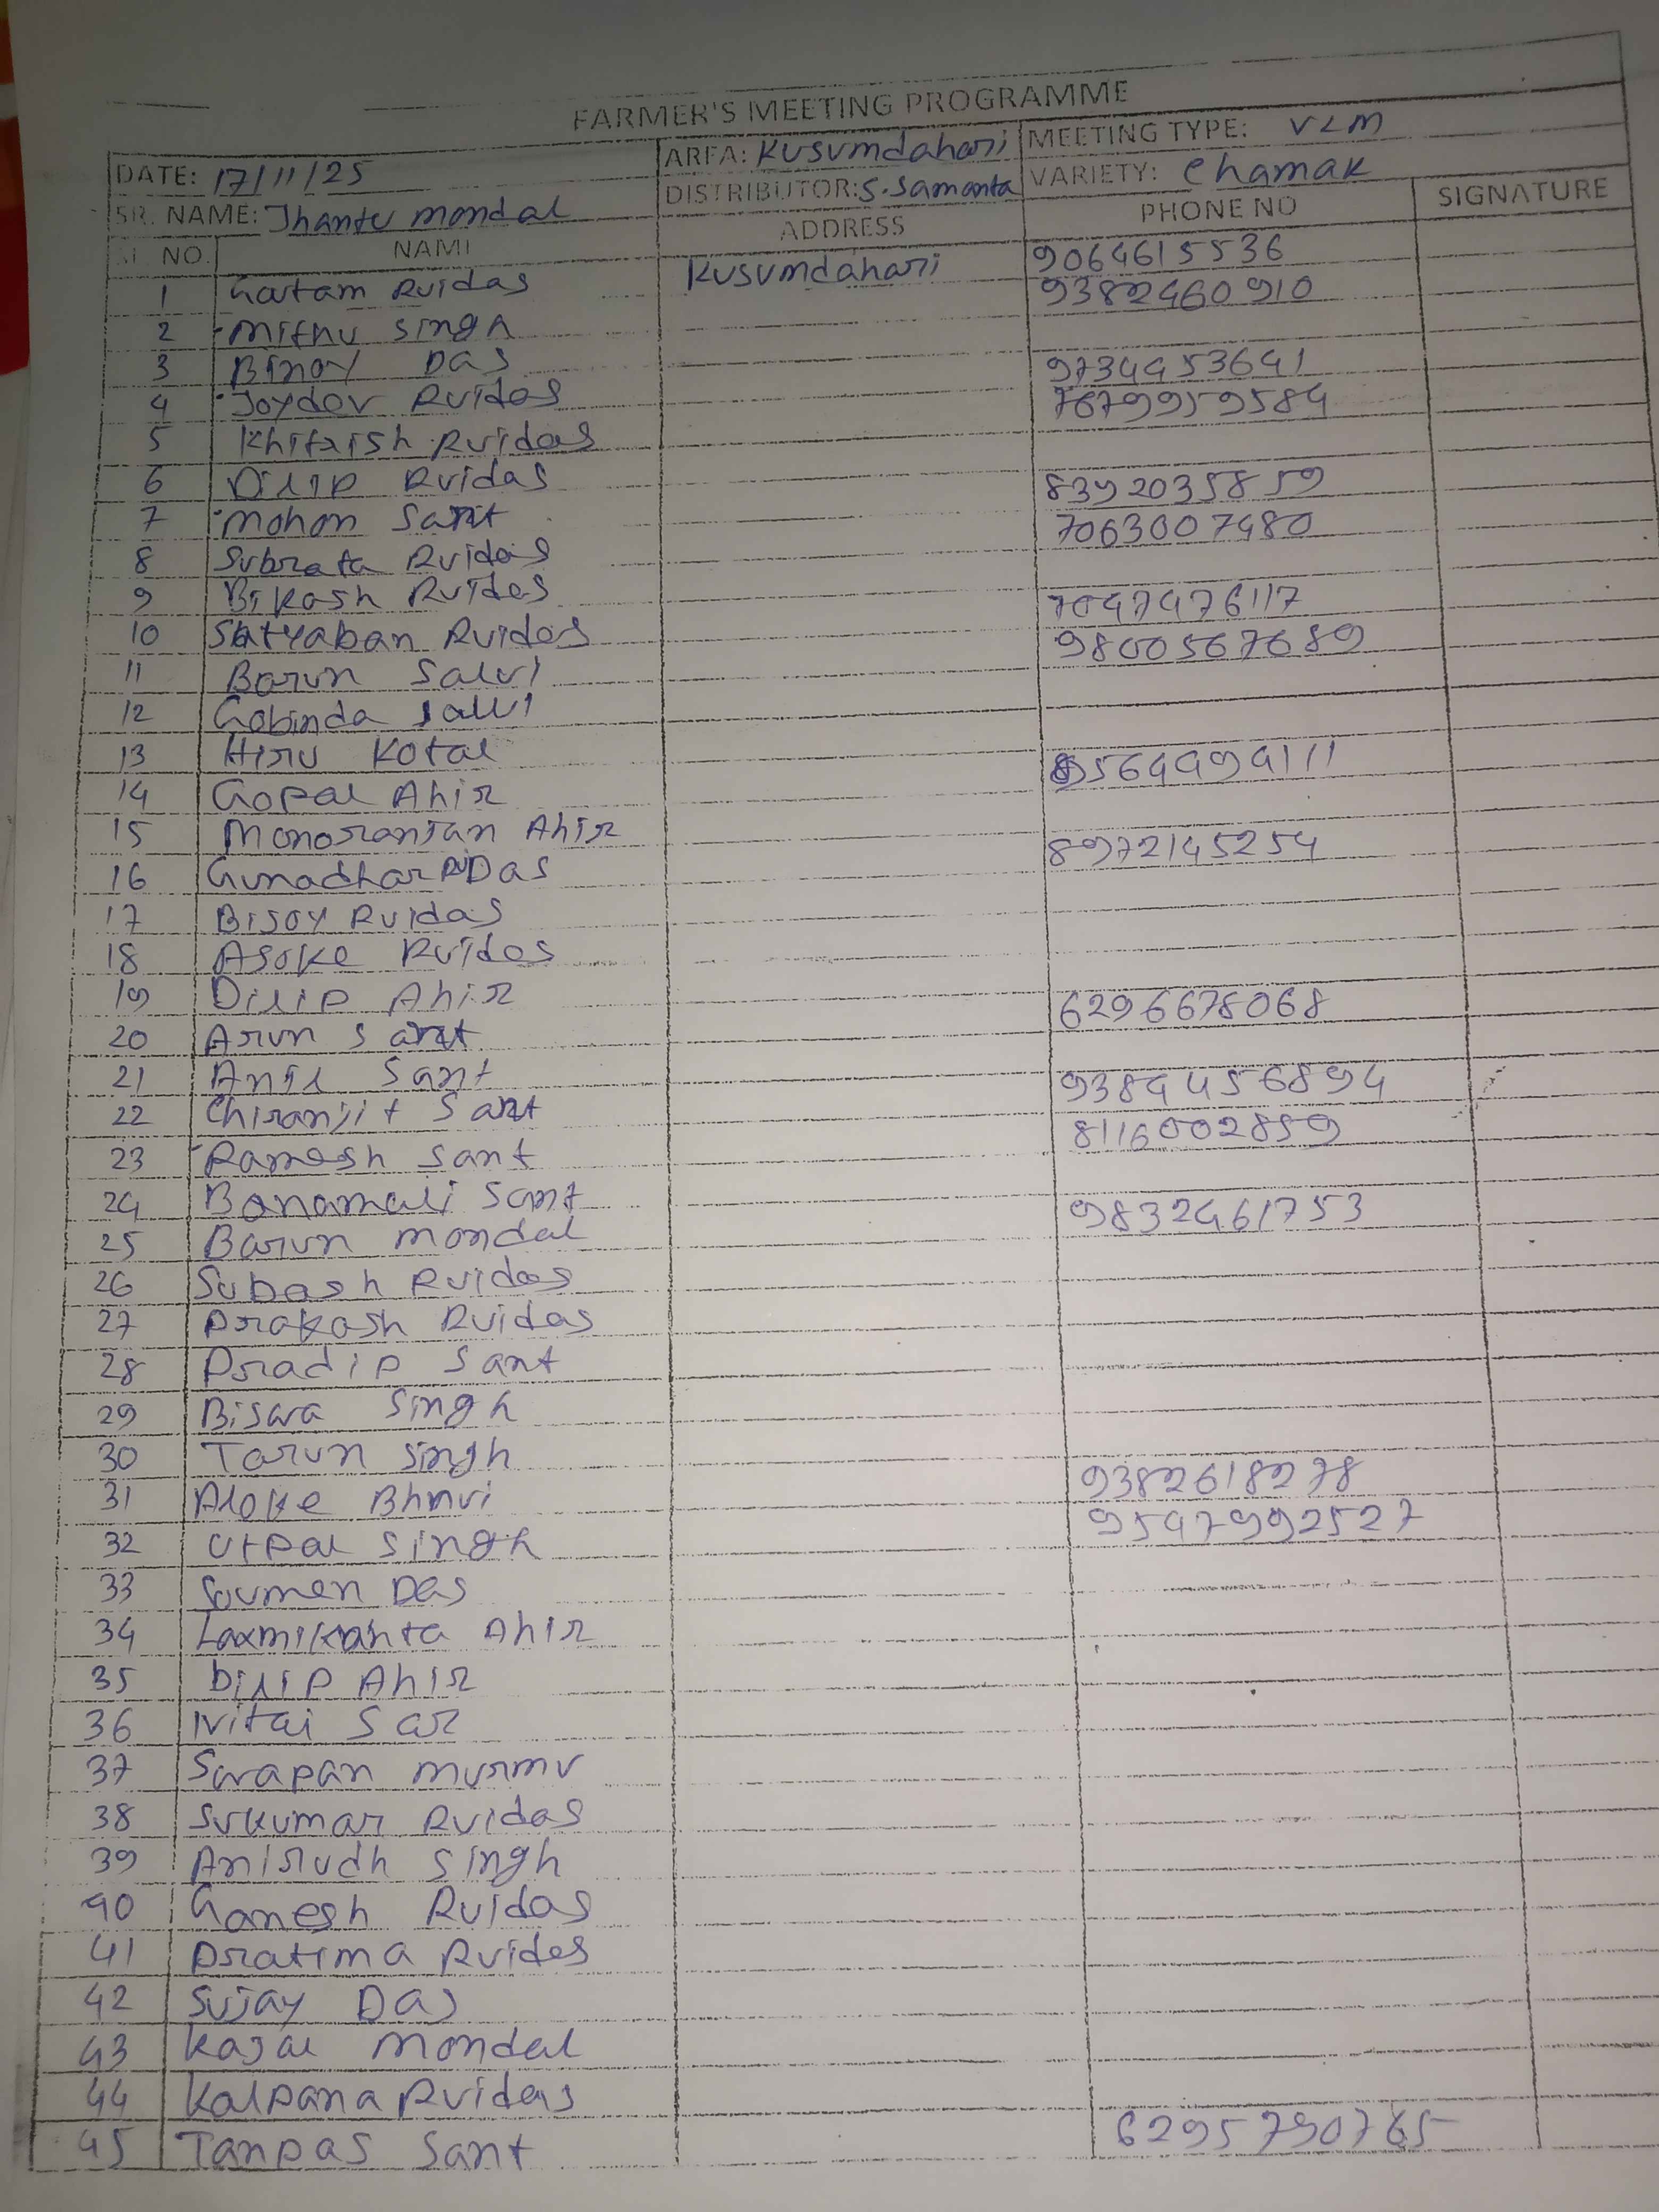 FARMER'S MEETING PROGRAMME
DATE: 17/11/25 AREA: Kusumdahari MEETING TYPE: VLM
SR. NAME: Jhantu mondal DISTRIBUTOR: S. Samanta VARIETY: Chamak
SL NO. NAME ADDRESS PHONE NO SIGNATURE
1 Gautam Ruidas Kusumdahari 9064615536
2 Mithu Singh 9382460910
3 Binoy Das
4 Joydev Ruidas 9734453641
5 Khitish Ruidas 7679959584
6 Dilip Ruidas
7 Mohon Sant 8392035859
8 Subrata Ruidas 7063007480
9 Bikash Ruidas
10 Satyaban Ruidas 7047476117
11 Barun Salui 9800567689
12 Gobinda Salui
13 Hiru Kotal
14 Gopal Ahir 9564494111
15 Monoranjan Ahir
16 Gunadhar Das 8972145254
17 Bijoy Ruidas
18 Asoke Ruidas
19 Dilip Ahir
20 Arun Sant 6296678068
21 Anil Sant
22 Chiranjit Sant 9384456894
23 Ramesh Sant 8116002859
24 Banamali Sant
25 Barun mondal 9832461753
26 Subash Ruidas
27 Prakash Ruidas
28 Pradip Sant
29 Biswa Singh
30 Tarun Singh
31 Aloke Bhnui 9382618278
32 Utpal Singh 9547992527
33 Soumen Das
34 Laxmikanta Ahir
35 Dilip Ahir
36 Nitai Sar
37 Swapan murmu
38 Sukumar Ruidas
39 Anirudh Singh
40 Ganesh Ruidas
41 Pratima Ruidas
42 Sujay Das
43 Kajal Mondal
44 Kalpana Ruidas
45 Tanpas Sant 6295790765